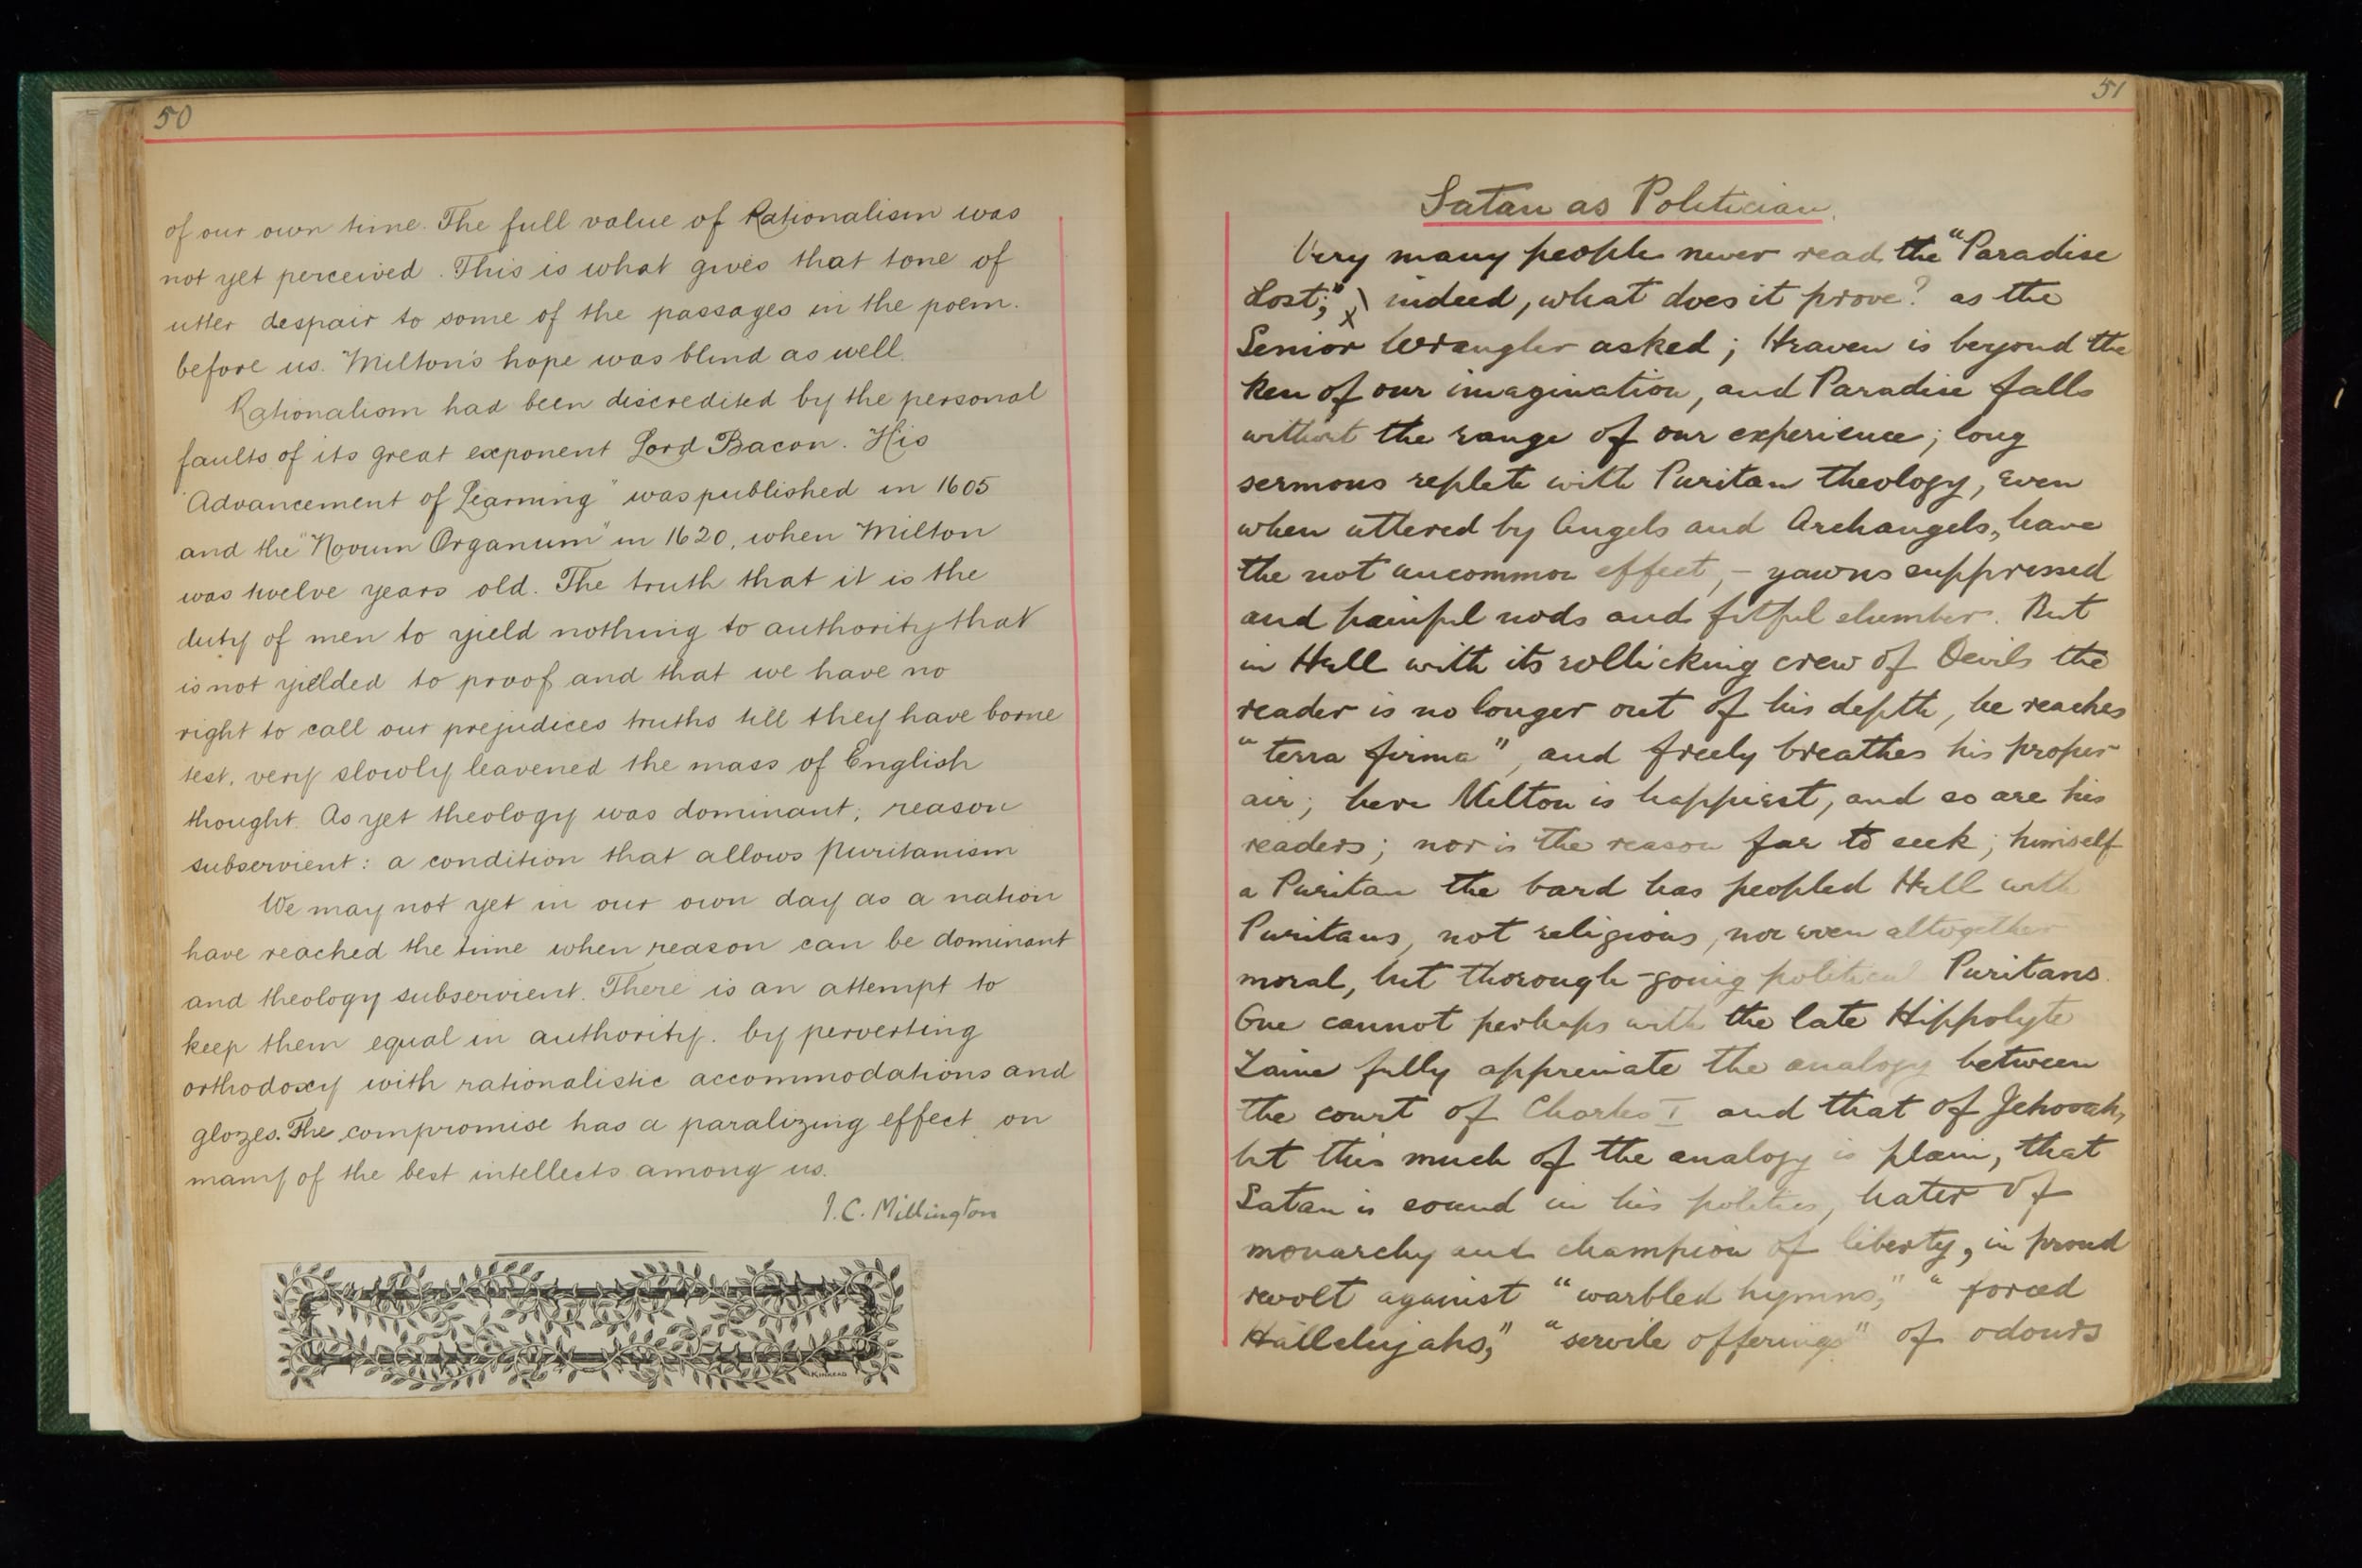 50
of our own time. The full value of Rationalism was
not yet perceived. This is what gives that tone of
utter despair to some of the passages in the poem.
before us. Milton's hope was blind as well.
Rationalism had been discredited by the personal
faults of its great exponent Lord Bacon. His
"Advancement of Learning" was published in 1605
and the "Novum Organum" in 1620, when Milton
was twelve years old. The truth that it is the
duty of men to yield nothing to authority that
is not yielded to proof and that we have no
right to call our prejudices truths till they have borne
test, very slowly leavened the mass of English
thought. As yet theology was dominant; reason
subservient: a condition that allows puritanism
We may not yet in our own day as a nation
have reached the time when reason can be dominant
and theology subservient. There is an attempt to
keep them equal in authority. by perverting
orthodoxy with rationalistic accommodations and
glozes. The compromise has a paralizing effect on
many of the best intellects among us.
J. C. Millington
KINNEAD
51
Satan as Politician.
Very many people never read the "Paradise
Lost;" x indeed, what does it prove? as the
Senior Wrangler asked; Heaven is beyond the
ken of our imagination, and Paradise falls
without the range of our experience; long
sermons replete with Puritan theology, even
when uttered by Angels and Archangels, have
the not uncommon effect, - yawns suppressed
and painful nods and fitful slumber. But
in Hell with its rollicking crew of Devils the
reader is no longer out of his depth, he reaches
"terra firma", and freely breathes his proper
air; here Milton is happiest, and so are his
readers; nor is the reason far to seek; himself
a Puritan the bard has peopled Hell with
Puritans, not religious, nor even altogether
moral, but thorough-going political Puritans.
One cannot perhaps with the late Hippolyte
Taine fully appreciate the analogy between
the court of Charles I and that of Jehovah,
but this much of the analogy is plain, that
Satan is sound in his politics, hater of
monarchy and champion of liberty, in proud
revolt against "warbled hymns," "forced
Hallelujahs," "servile offerings" of odours